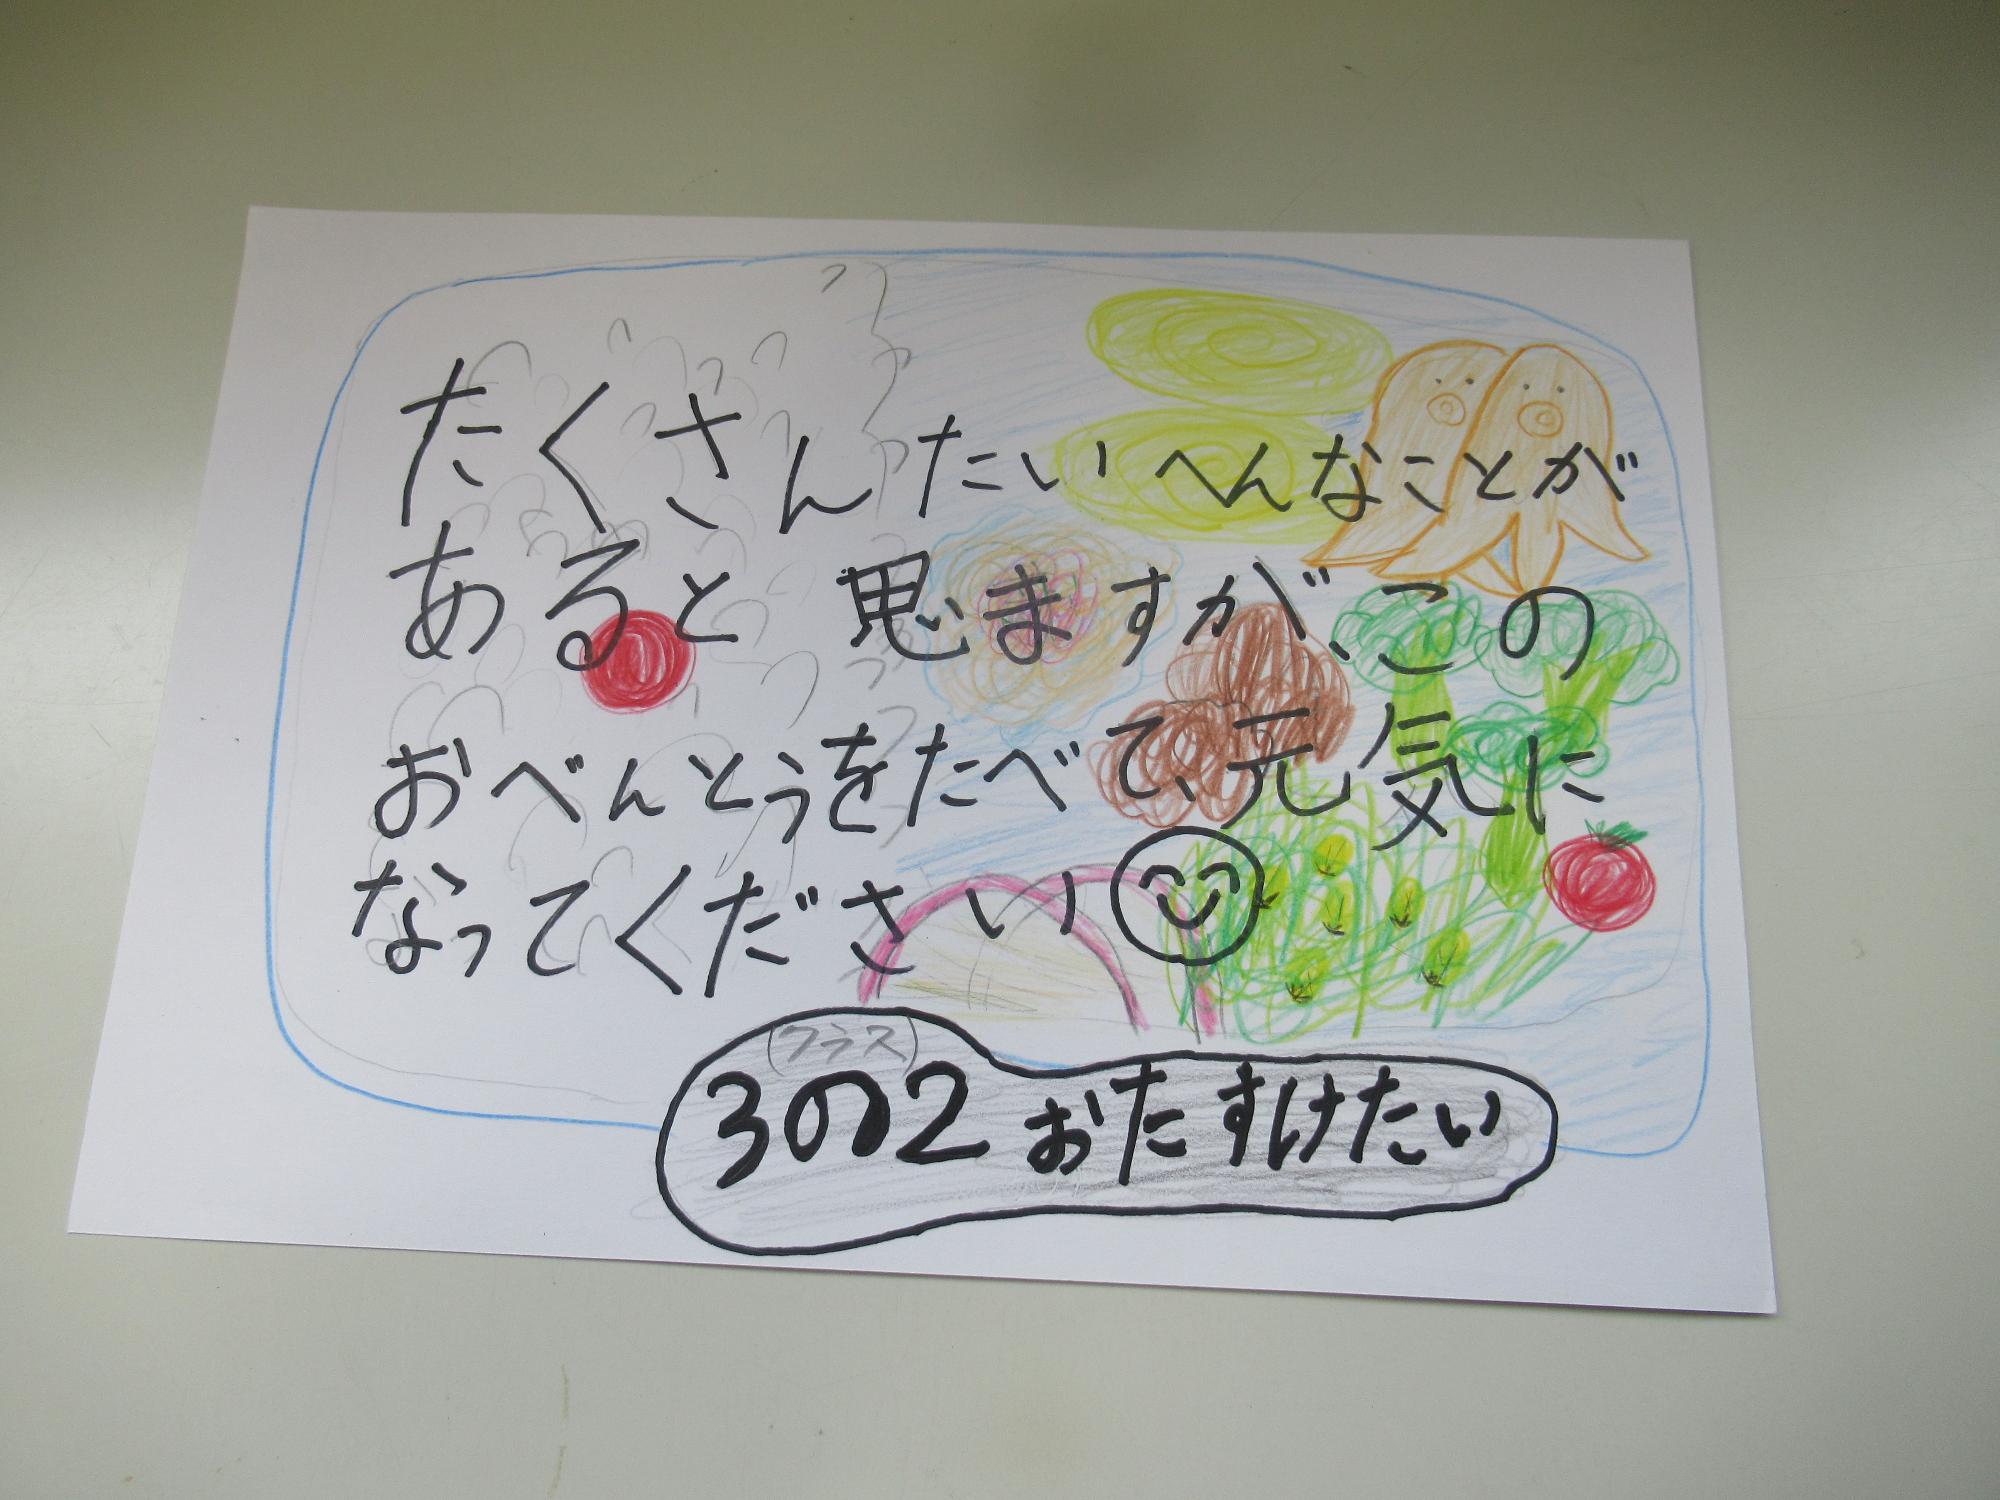 たくさんたいへんなことが
あると思ますが、この
おべんとうをたべて、元気に
なってください
(クラス)
3の2 おたすけたい